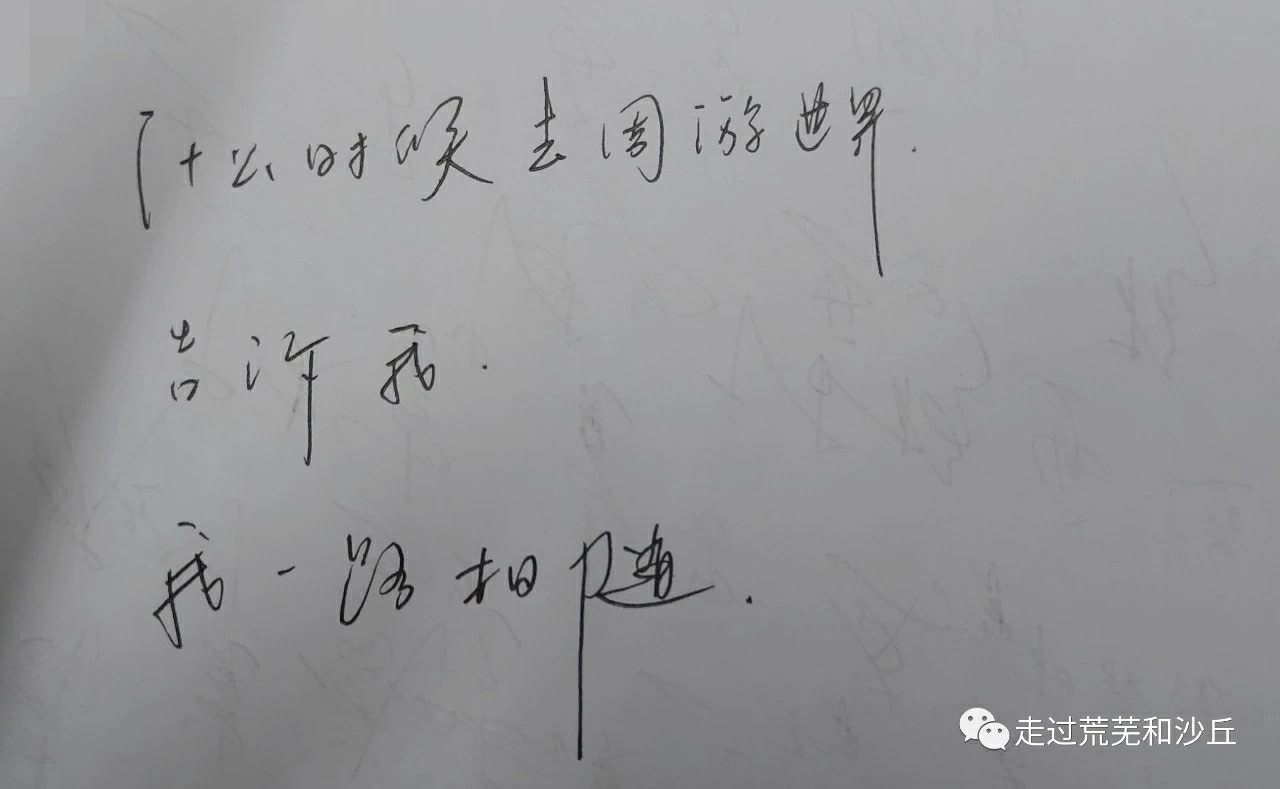 什么时候去周游世界.
告许我.
我一路相随.
走过荒芜和沙丘